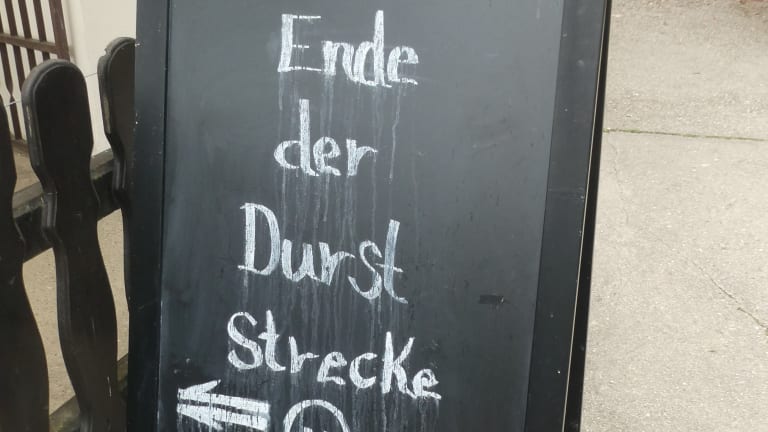 Ende
der
Durst
Strecke